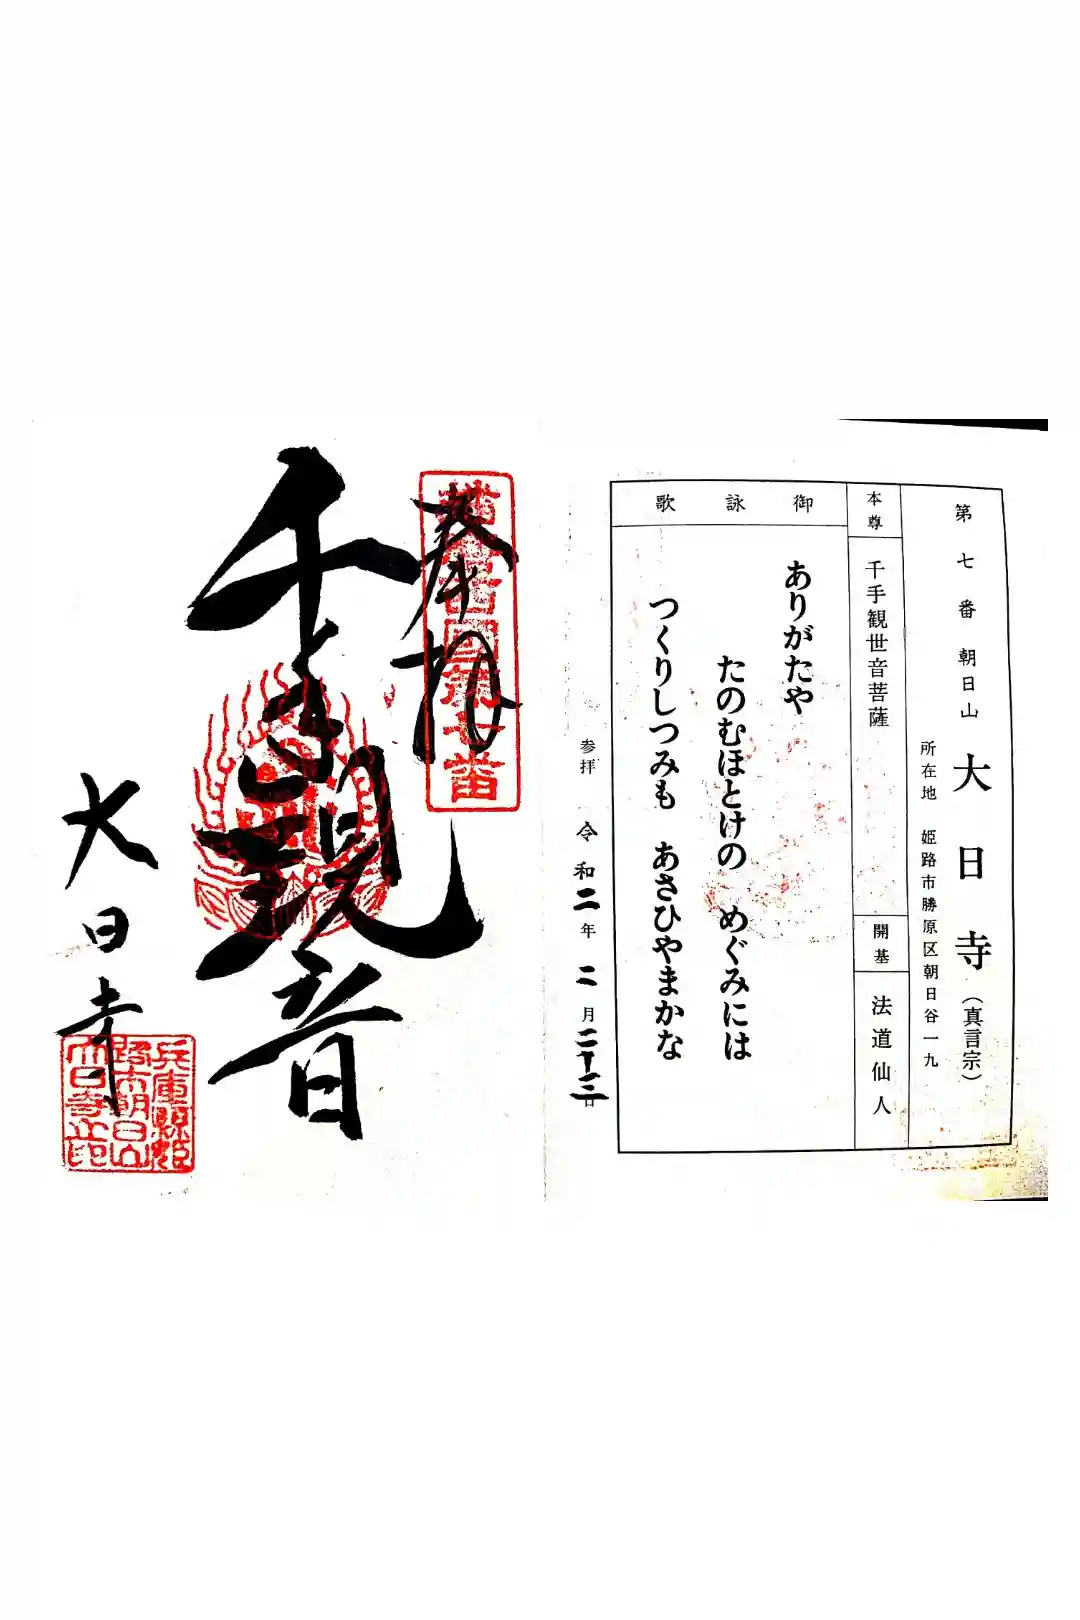 第七番 朝日山 大日寺（真言宗）
所在地 姫路市勝原区朝日谷一九
本尊 千手観世音菩薩
開基 法道仙人
御詠歌
ありがたや
たのむほとけの めぐみには
つくりしつみも あさひやまかな
参拝 令和二年 二月二十三日
奉拝
播西国第七番
千手観音
大日寺
兵庫県姫
路市朝日山
大日寺之印